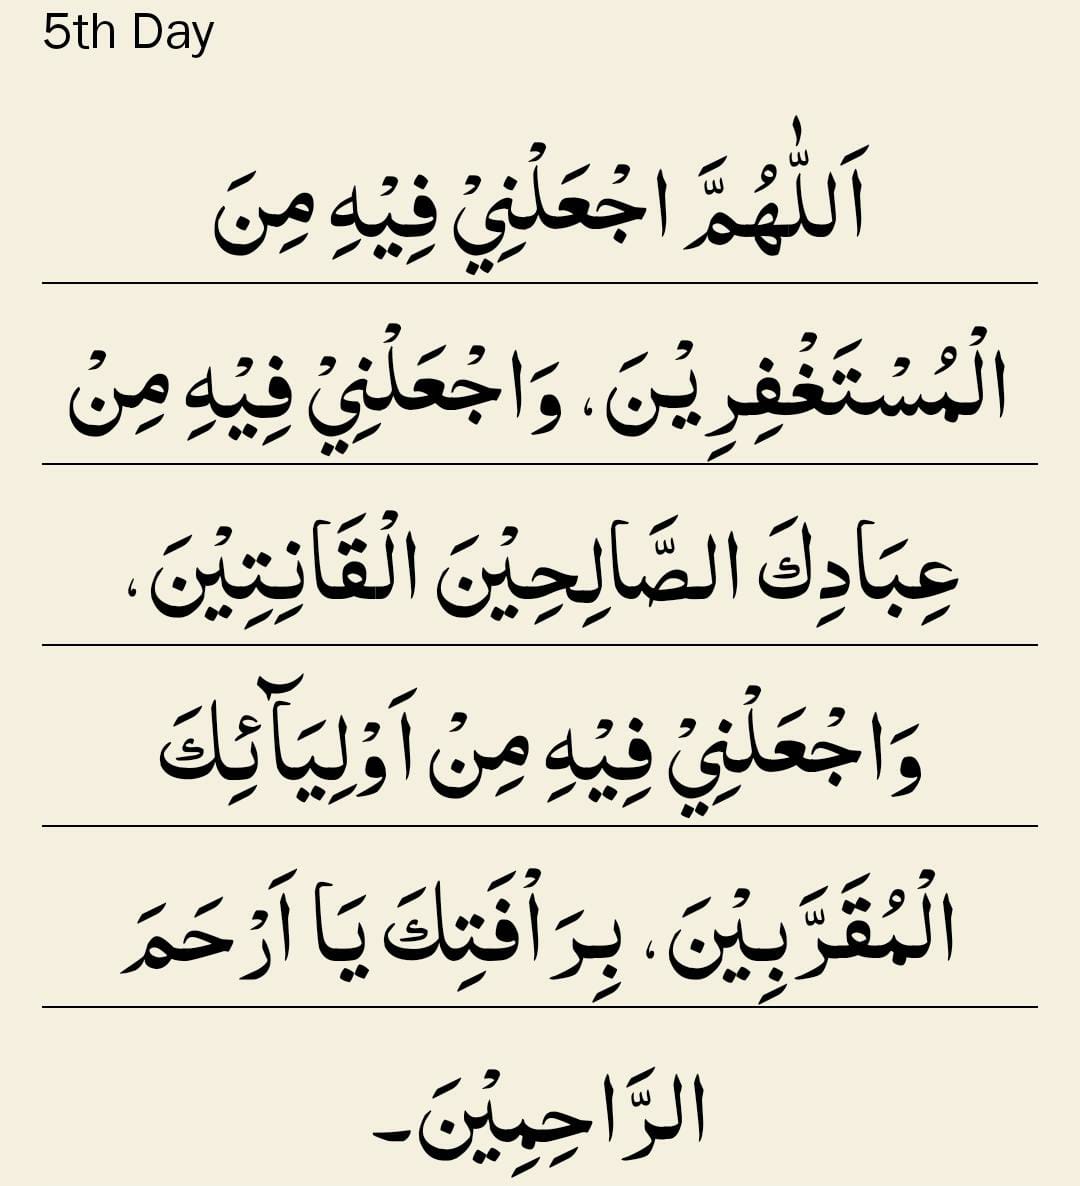 5th Day
اَللّٰهُمَّ اجْعَلْنِيْ فِيْهِ مِنَ
الْمُسْتَغْفِرِيْنَ، وَاجْعَلْنِيْ فِيْهِ مِنْ
عِبَادِكَ الصَّالِحِيْنَ الْقَانِتِيْنَ،
وَاجْعَلْنِيْ فِيْهِ مِنْ اَوْلِيَآئِكَ
الْمُقَرَّبِيْنَ، بِرَاْفَتِكَ يَا اَرْحَمَ
الرَّاحِمِيْنَ۔